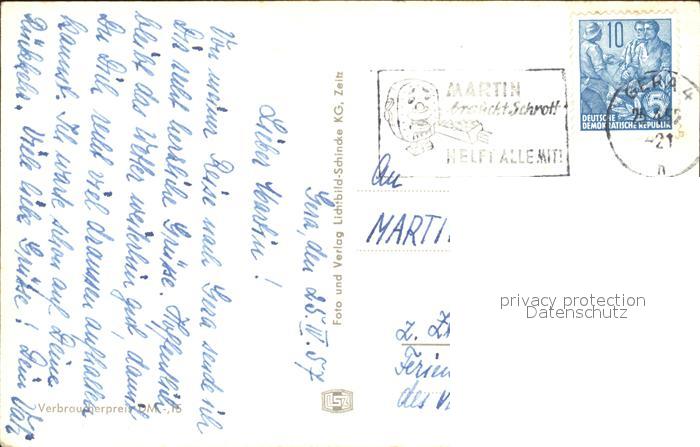 Gera, den 25.IV.57
Lieber Martin!
Von meiner Reise nach Gera sende ich
Dir recht herzliche Grüsse. Hoffentlich
bleibt das Wetter weiterhin gut, damit
Du Dich recht viel draussen aufhalten
kannst. Ich warte schon auf Deine
Rückkehr. Viele liebe Grüsse! Dein
Verbraucherpreis DM -,15
Foto und Verlag Lichtbild-Schincke KG, Zeitz
MARTIN
braucht Schrott
HELFT ALLE MIT!
10
DEUTSCHE
DEMOKRATISCHE REPUBLIK
GERA 4
-21
h
An
MARTI
privacy protection
Datenschutz
z.
Ferien
des